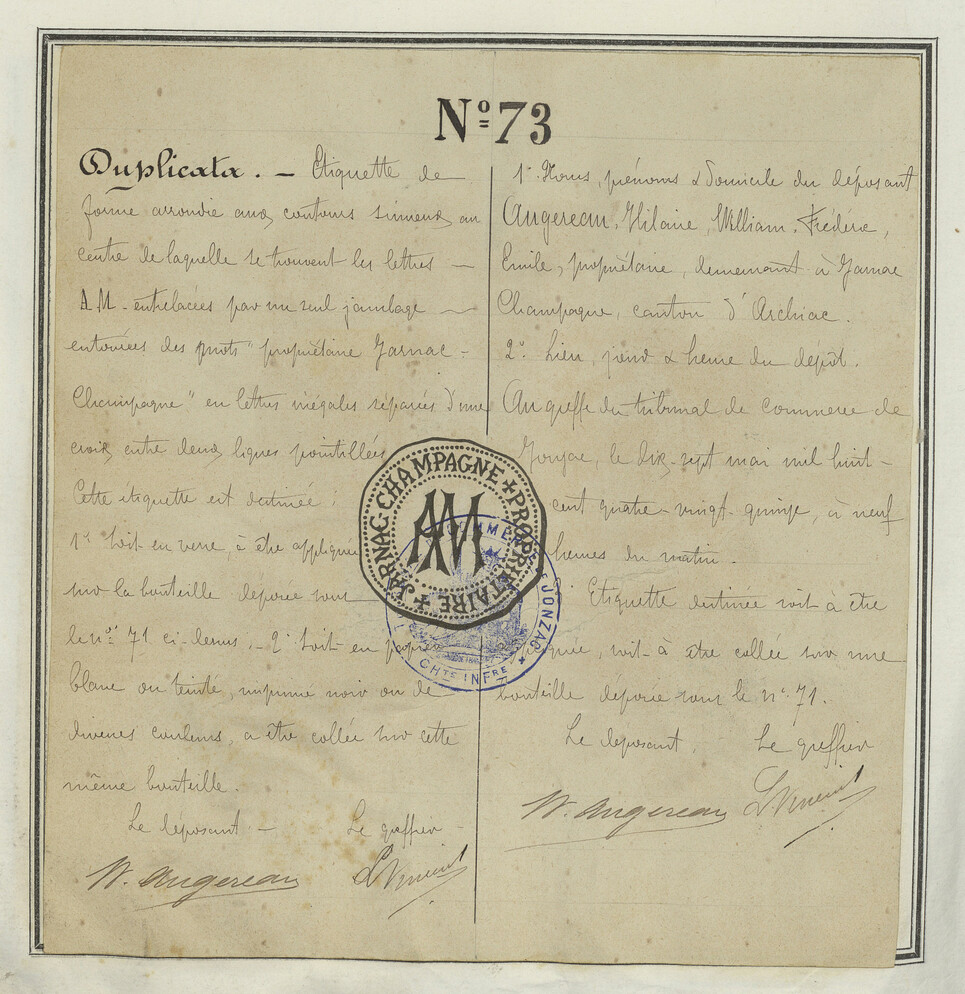 Nº 73
Duplicata. — Etiquette de
forme arrondie aux contours sinueux au
centre de laquelle se trouvent les lettres —
A.M. entrelacées par un seul jambage —
entourées des mots "propriétaire Jarnac-
Champagne" en lettres inégales séparés d'une
croix, entre deux lignes pointillées
Cette étiquette est destinée:
1º Soit en verre, à être appliquée
sur la bouteille déposée sous
le nº 71 ci-dessus. - 2º Soit en papier
blanc ou teinté, imprimé noir ou de
diverses couleurs, à être collée sur cette
même bouteille.
Le déposant - Le greffier -
W. Augereau
1º Noms, prénoms & domicile du déposant
Augereau, Hilaire, William, Frédéric,
Emile, propriétaire, demeurant à Jarnac
Champagne, canton d'Archiac.
2º Lieu, jour & heure du dépôt.
Au greffe du tribunal de commerce de
Jonzac, le dix-sept mai mil huit-
cent quatre-vingt-quinze, à neuf
heures du matin.
Etiquette destinée soit à être
soit à être collée sur une
bouteille déposée sous le nº 71.
Le déposant, Le greffier
W. Augereau
JARNAC-CHAMPAGNE + PROPRIETAIRE +
AM
COMMERCE JONZAC
CHTE INFRE